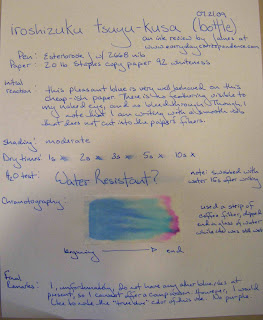 07.21.09
Iroshizuku tsuyu-kusa (bottle)
an ink review by
www.everydaycorrespondence.com
Pen: Esterbrook J w/ 2668 nib
Paper: 20 lb Staples copy paper 92 whiteness
Initial reaction: this pleasant blue is very well behaved on this
cheap-ish paper. There is no feathering visible to
my naked eye, and no bleedthrough. Though I
note that I am writing with a smooth nib
that does not cut into the paper's fibers.
Shading: moderate
Dry times: 1s 2s 3s 5s 10s x
H2O test: Water Resistant?
note: swabbed with
water 15s after writing
Chromatography:
used a strip of
coffee filter, dipped
end in glass of water
while
beginning → end
Final Remarks: I, unfortunately, do not have any other blue inks at
present, so I cannot offer a comparison. However, I would
like to note the "true blue" color of this ink. No purple